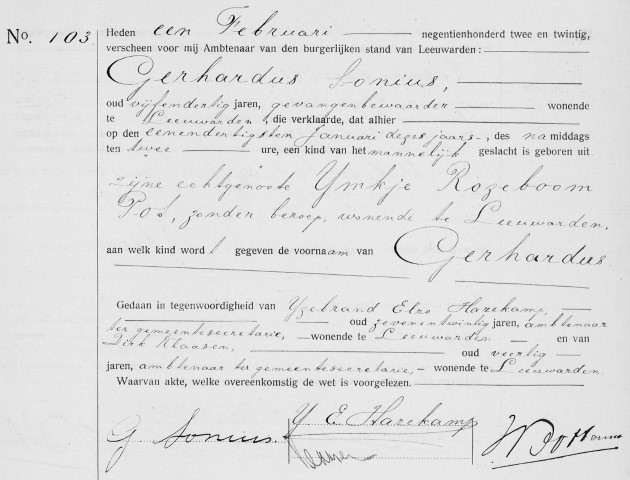 No. 103.
Heden een Februari negentienhonderd twee en twintig,
verscheen voor mij Ambtenaar van den burgerlijken stand van Leeuwarden:
Gerhardus Sonius,
oud vijfendertig jaren, gevangenbewaarder wonende
te Leeuwarden, die verklaarde, dat alhier
op den eenendertigsten Januari dezes jaars, des namiddags
ten twee ure, een kind van het mannelijk geslacht is geboren uit
zijne echtgenoote Ymkje Rozeboom
Pot, zonder beroep, wonende te Leeuwarden,
aan welk kind wordt gegeven de voornaam van Gerhardus.
Gedaan in tegenwoordigheid van Ysebrand Elzo Hazekamp,
oud zevenentwintig jaren, ambtenaar
ter gemeentesecretarie, wonende te Leeuwarden en van
Dirk Klaasen, oud veertig
jaren, ambtenaar ter gemeentesecretarie, wonende te Leeuwarden.
Waarvan akte, welke overeenkomstig de wet is voorgelezen.
G Sonius. Y E Hazekamp